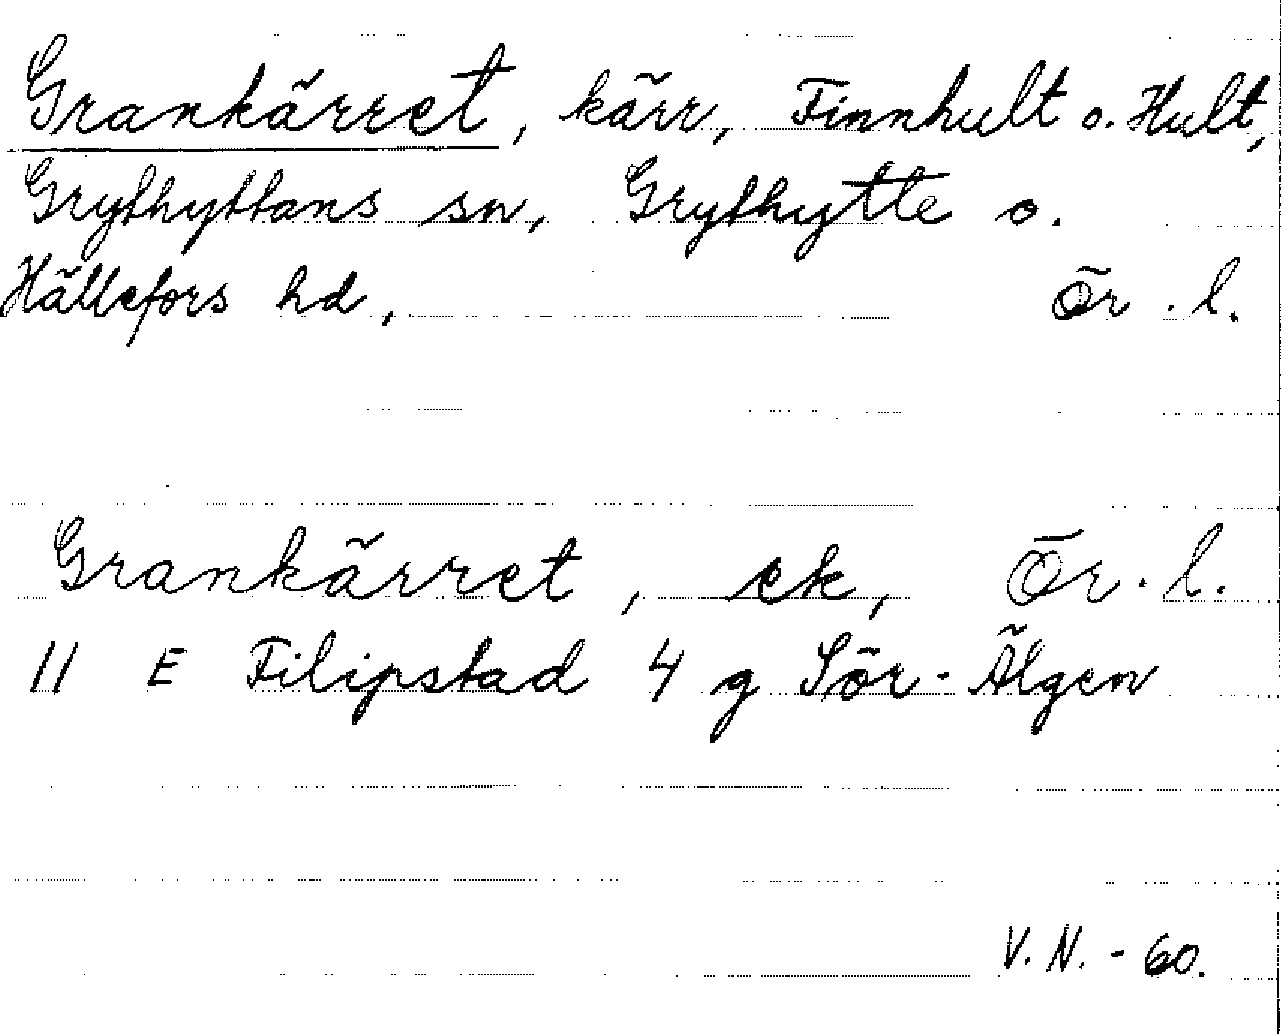 Grankärret, kärr, Finnhult o. Hult,
Grythyttans sn, Grythytte o.
Hällefors hd, Ör. l.
Grankärret, ek, Ör. l.
11 E Filipstad 4 g Sör-Älgen
V. N. - 60.